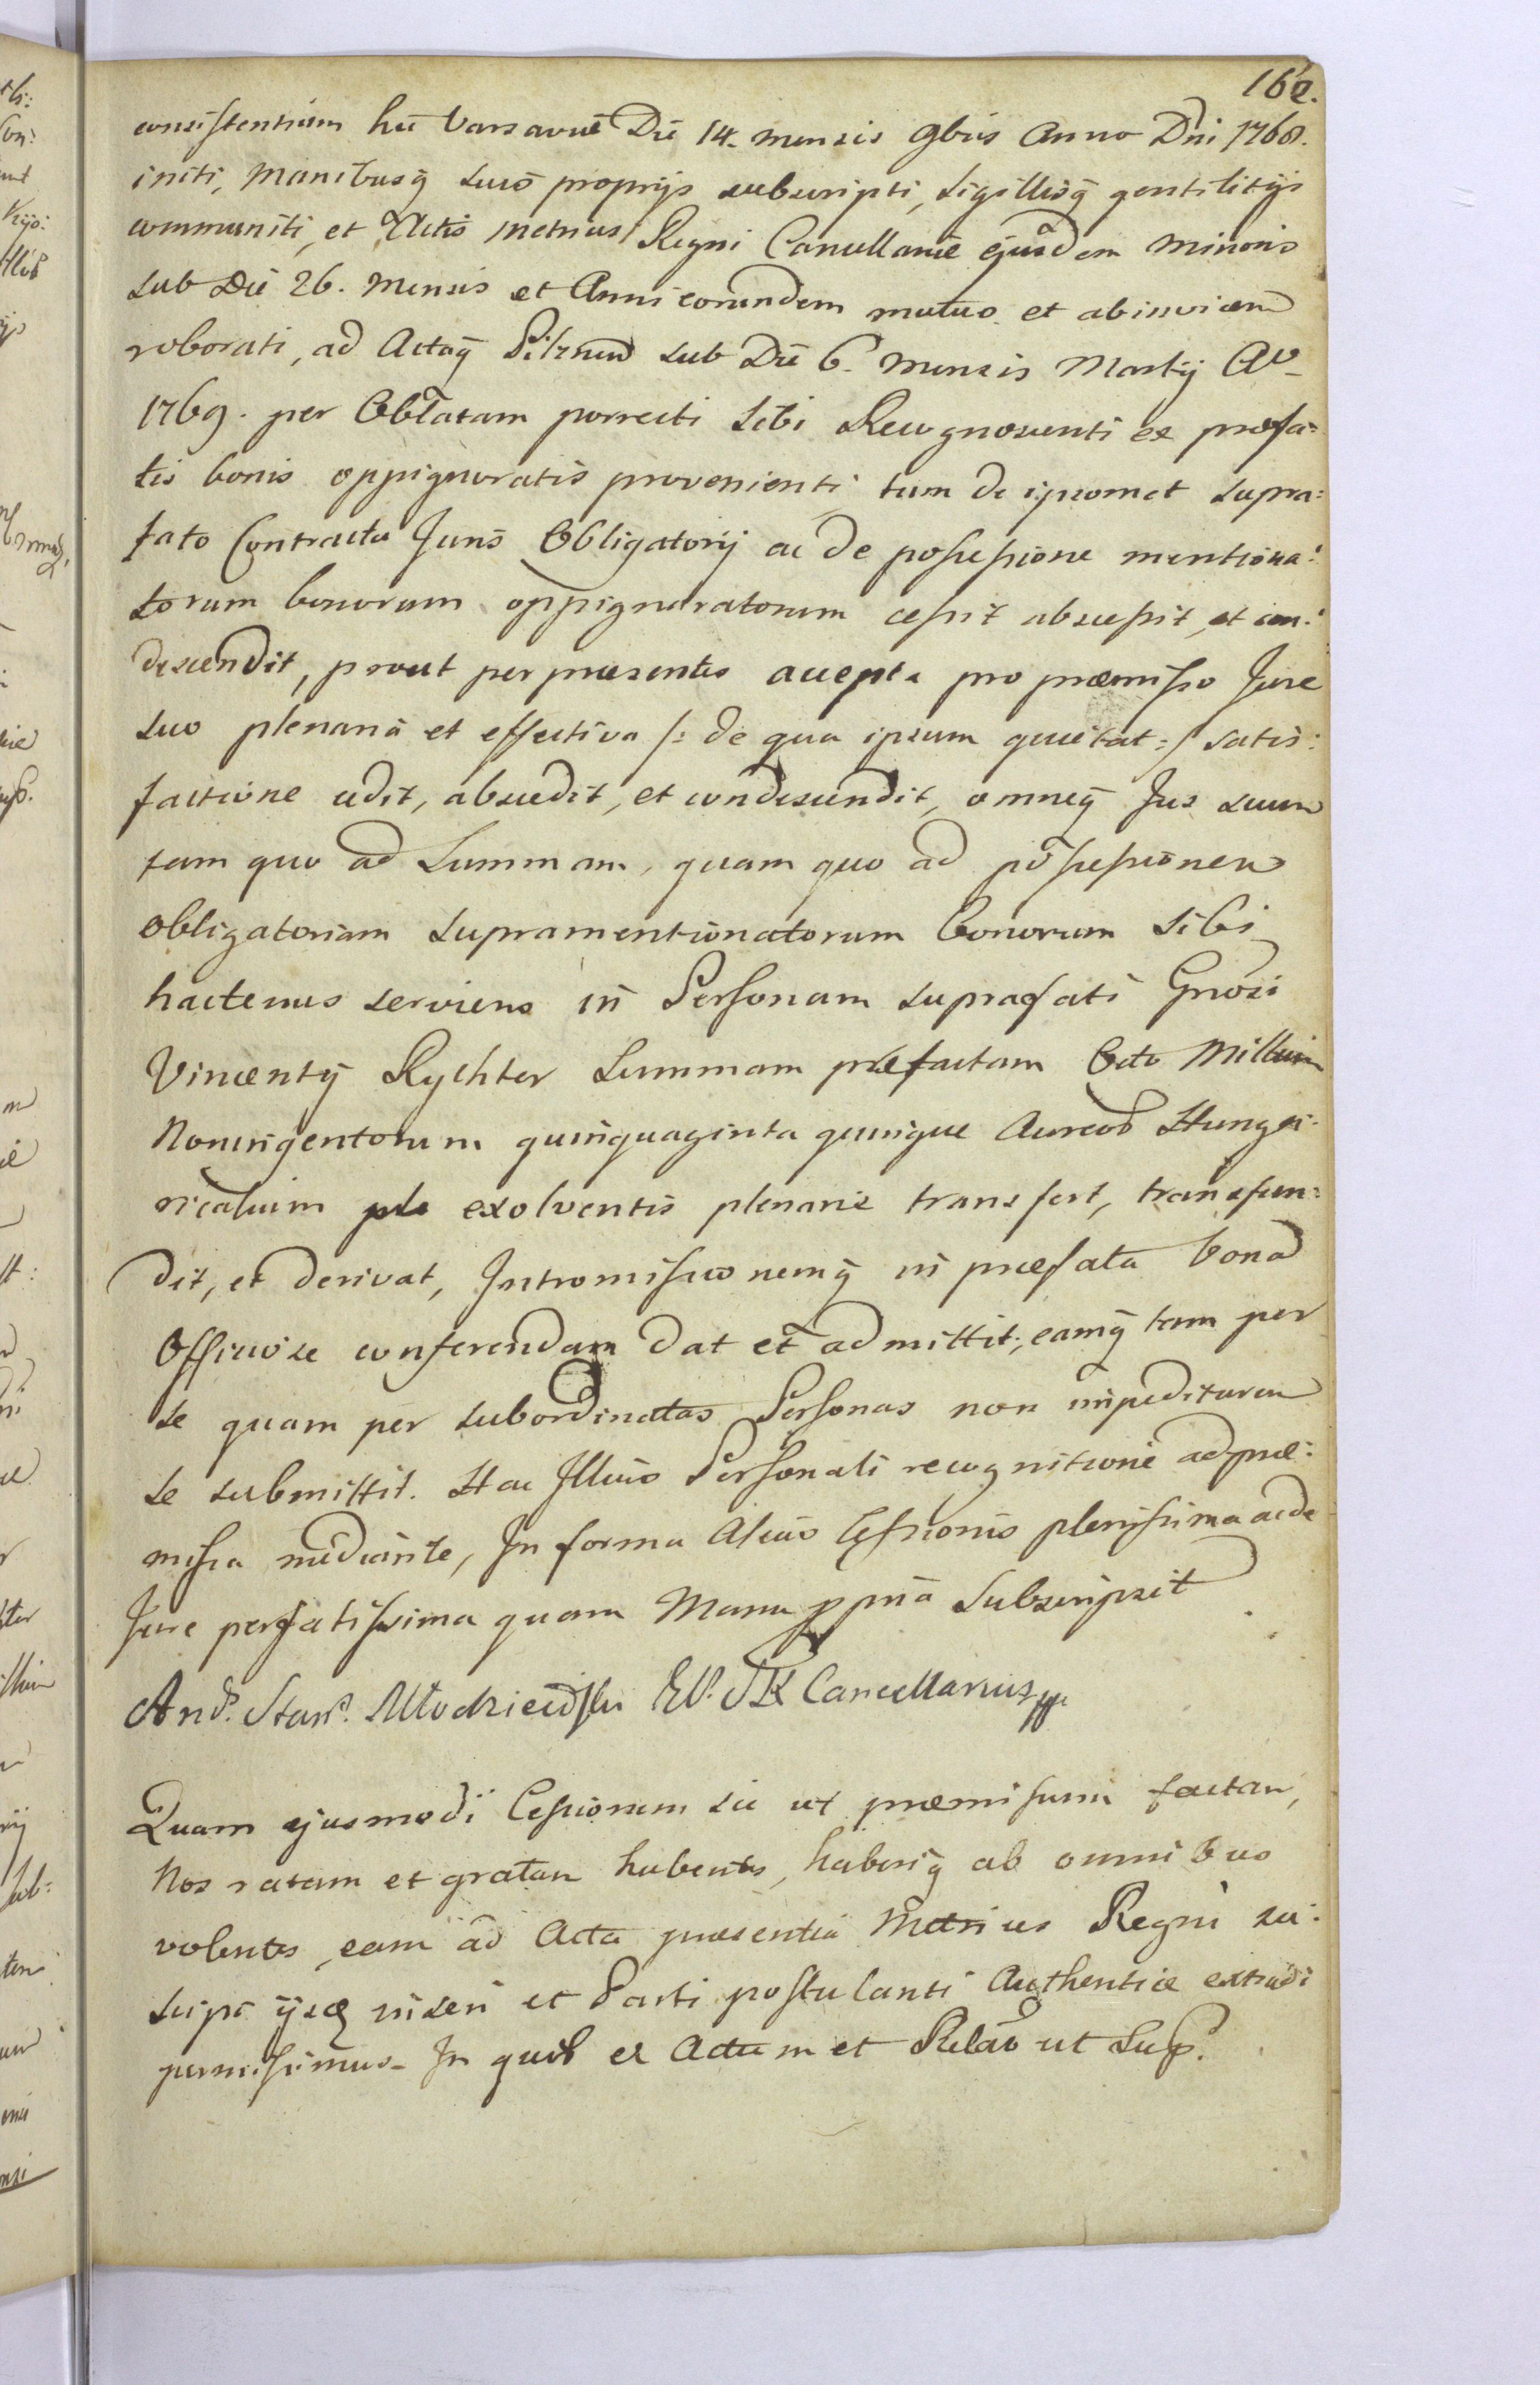 162.
consistentiam hic Varsaviæ Die 14. mensis 9bris Anno Dni 1768.
initi, Manibusq̃ suis proprijs subscripti, sigillisq̃ gentilitijs
communiti, et Actis Metrices Regni Cancellariæ ejusdem Minoris
sub Die 26. Mensis et Anni eorundem mutuo et abinvicem
roborati, ad Actaq̃ Pilznen sub Die 6. mensis Martij Ao
1769. per Oblatam porrecti sibi Recognoscenti ex præfa=
tis bonis oppignoratis provenienti tum de ipsomet supra=
fato Contractu Juris Obligatorij ac de possessione mentiona=
torum bonorum oppignoratorum cessit abscessit, et con=
descendit, prout per præsentes accepta pro præmisso Jure
suo plenaria et effectiva /: de qua ipsum quietat :/ satis=
factione cedit, abscedit, et condescendit, omneq̃ Jus suum
tam quo ad Summam, quam quo ad possessionem
obligatoriam supramentionatorum bonorum sibi
hactenus serviens in Personam suprafati Gnosi
Vincentij Rychter Summam præfactam Octo Millium
Noningentorum quinquaginta quinque Aureor Hunga=
ricalium exolventis plenarie transfert, transfun=
dit, et derivat, Intromissionemq̃ in præfata bona
Officiose conferendam dat et admittit, eamq̃ tam per
se quam per subordinatas Personas non impediturum
se submittit. Hac Illius Personali recognitione ad præ=
missa mediante, In forma Alicuis Cessionis plenissima ac de
Jure perfatissima quam Manu ppria Subscripsit
Andr. Stan. Młodzieiowski EP. JK Cancellarius mp
Quam ejusmodi Cessionem sic ut præmissum factam,
Nos ratam et gratam habentes, haberiq̃ ab omnibus
volentes, eam ad Acta præsentia Metrices Regni su=
scipi ijsq̃ inseri et Parti postulanti Authentice extradi
permisimus. In quor Actum et Relao ut Sup.